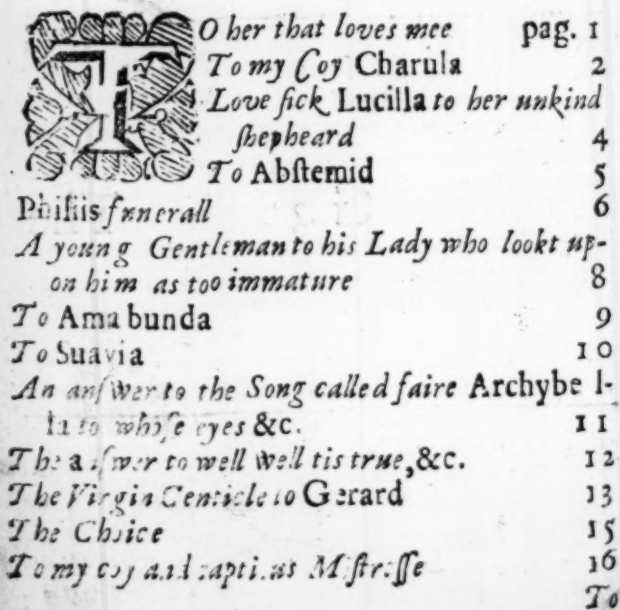 TO her that loves mee pag. 1
To my Coy Charula 2
Love ſick Lucilla to her unkind
ſhepheard 4
To Abſtemid 5
Phillis funerall 6
A young Gentleman to his Lady who lookt up-
on him as too immature 8
To Amabunda 9
To Suavia 10
An anſwer to the Song called faire Archybel-
la to whoſe eyes &c. 11
The anſwer to well well tis true, &c. 12
The Virgin to Gerard 13
The Choice 15
To my coy and captious Miſtreſſe 16
To